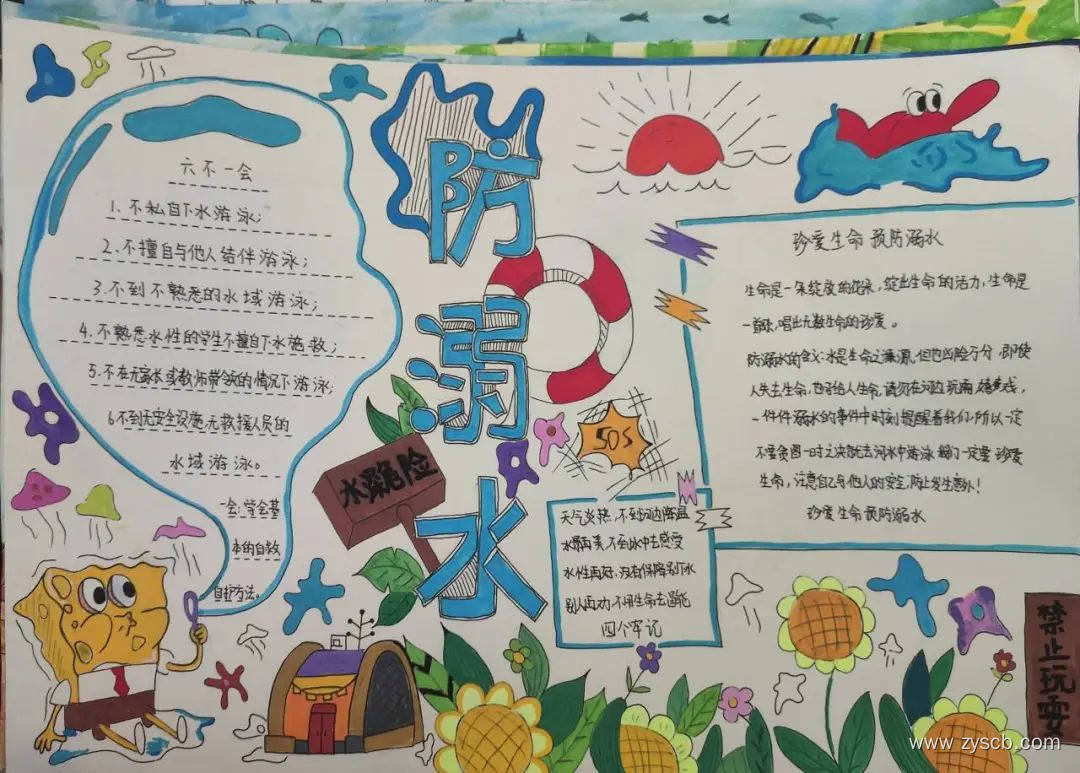 防溺水
六不一会
1.不私自下水游泳;
2.不擅自与他人结伴游泳;
3.不到不熟悉的水域游泳;
4.不熟悉水性的学生不擅自下水施救;
5.不在无家长或教师带领的情况下游泳;
6不到无安全设施,无救援人员的
水域游泳。
一会:学会基
本的自救
自护方法。
水深危险
SOS
天气炎热,不到河边降温
水景再美,不到水中去感受
水性再好,没有保障别下水
别人再劝,不用生命去逞能
四个牢记
珍爱生命 预防溺水
生命是一朵绽放的花朵,绽出生命的活力,生命是
一首歌,唱出无数生命的珍爱。
防溺水的含义:水是生命之源,但也凶险万分,即使
人失去生命,也
一件件溺水的事件中时刻提醒着我们,所以一定
不要贪图一时之快就去河水中游泳,我们一定要珍爱
生命,注意自己与他人的安全,防止发生意外!
珍爱生命 预防溺水
禁止玩耍
www.zyscb.com